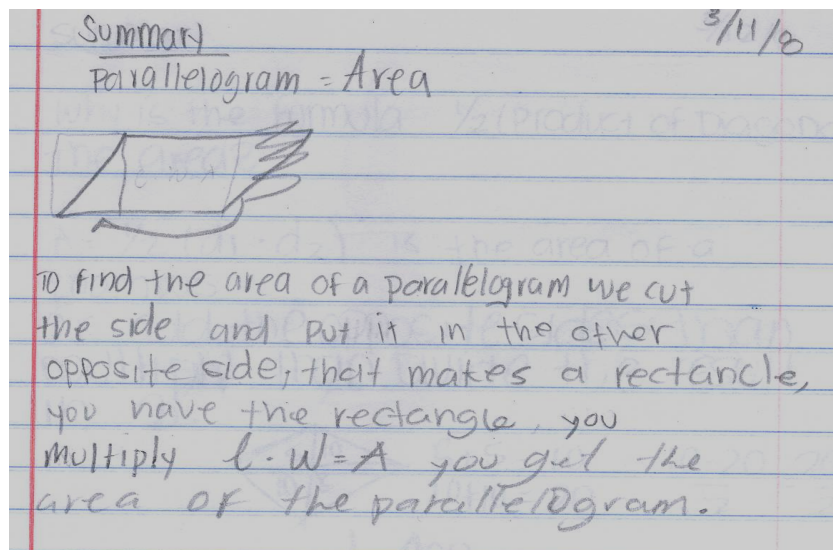 Summary
3/11/8
Parallelogram = Area
To find the area of a parallelogram we cut
the side and put it in the other
opposite side, that makes a rectancle,
you have the rectangle, you
multiply l · W = A you get the
area of the parallelogram.